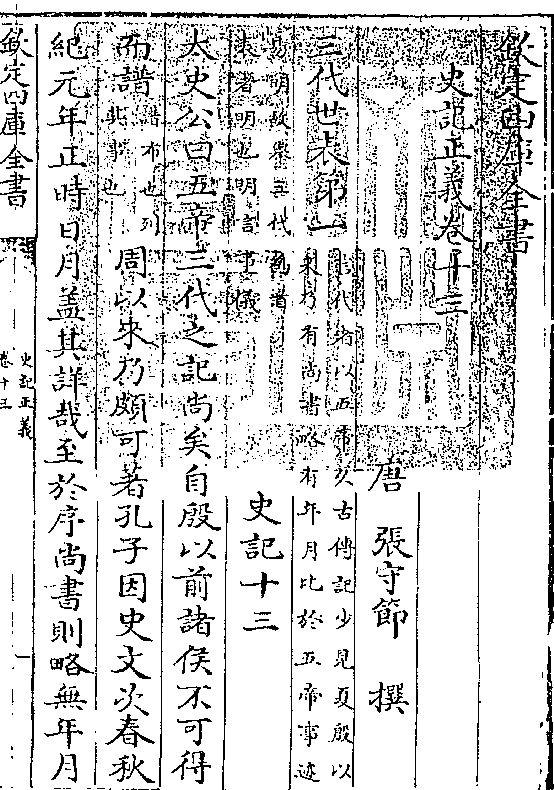 欽定四庫全書
史記正義卷十三
唐 張守節 撰
三代世表第一 言代者以五帝久古傳記少見夏殷以
來乃有尚書略有年月比於五帝事迹
易明故舉三代為首
表者明也明言事儀 史記十三
太史公曰五帝三代之記尚矣自殷以前諸侯不可得
而譜 譜布也列
其事也 周以來乃頗可著孔子因史文次春秋
紀元年正時日月蓋其詳哉至於序尚書則略無年月
欽定四庫全書
史記正義
卷十三
一